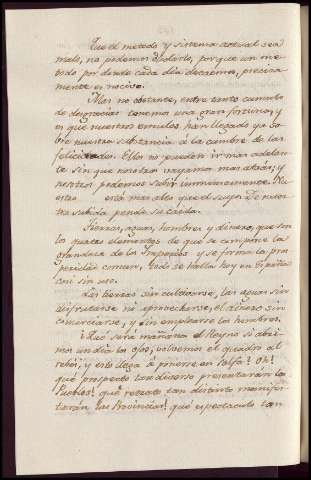 Que el metodo y sistema actual sea
malo, no podemos dudarlo, porque un me-
todo por donde cada dia decaemos, precisa-
mente es nocivo.
Mas no obstante, entre tanto cumulo
de desgracias tenemos una gran fortuna, y
es que nuestros emulos han llegado ya so-
bre nuestra substancia á la cumbre de las
felicidades. Ellos no pueden ir mas adelan-
te sin que nosotros vayamos mas atrás; y
nosotros podemos subir inmensamente. Nu-
estro está mas alto que el suyo. De nues-
tra subida pende su caída.
Tierras, aguas, hombres y dinero, que son
los quatro elementos de que se compone la
grandeza de los Imperios y se forma la pros-
peridad comun, todo se halla hoy en España
casi sin uso.
Las tierras sin cultivarse, las aguas sin
disfrutarse ni aprovecharse, el dinero sin
comerciarse, y sin emplearse los hombres.
¿Qué será mañana el Reyno si abri-
mos un dia los ojos, volvemos el quadro al
rebés, y esto llega á ponerse en solfa? Oh!
qué prospecto tan diverso presentarán los
Pueblos! qué retrato tan distinto manifes-
tarán las Provincias! qué espectáculo tan